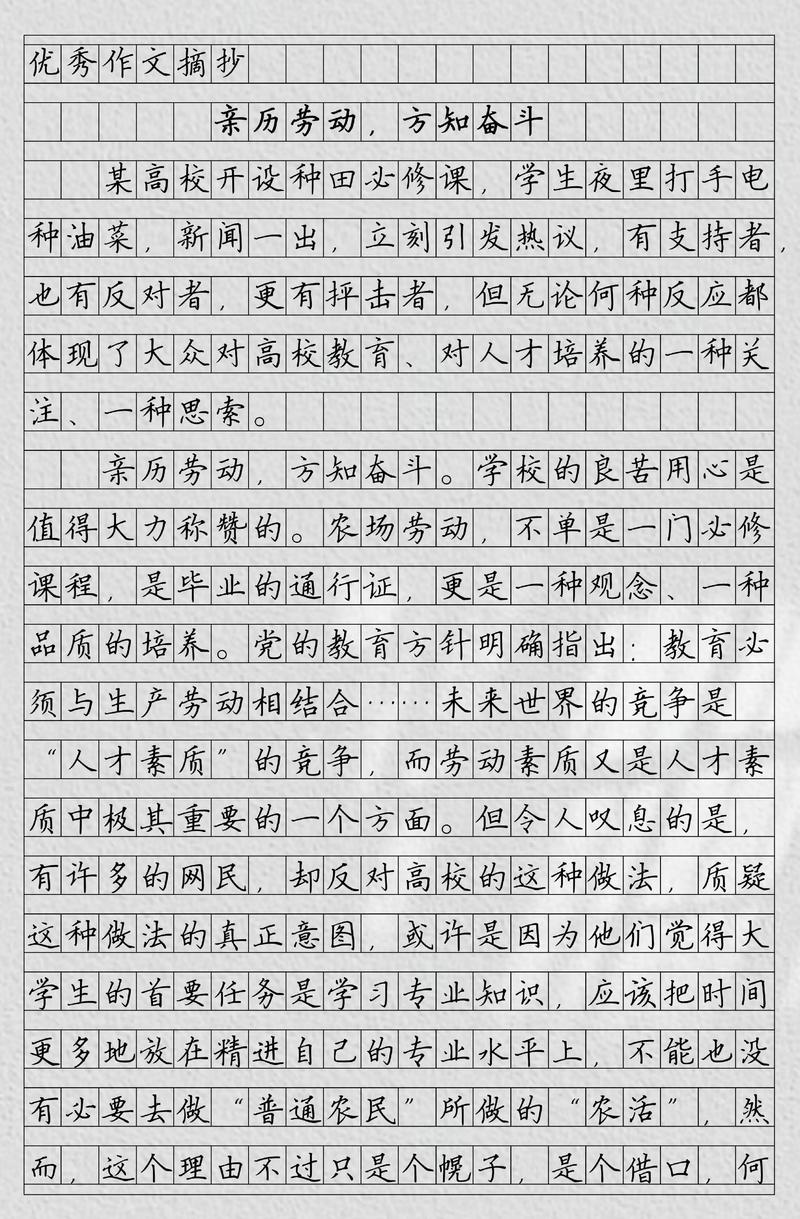 优秀作文摘抄
亲历劳动，方知奋斗
某高校开设种田必修课，学生夜里打手电
种油菜，新闻一出，立刻引发热议，有支持者，
也有反对者，更有抨击者，但无论何种反应都
体现了大众对高校教育、对人才培养的一种关
注、一种思索。
亲历劳动，方知奋斗。学校的良苦用心是
值得大力称赞的。农场劳动，不单是一门必修
课程，是毕业的通行证，更是一种观念、一种
品质的培养。党的教育方针明确指出：教育必
须与生产劳动相结合……未来世界的竞争是
“人才素质”的竞争，而劳动素质又是人才素
质中极其重要的一个方面。但令人叹息的是，
有许多的网民，却反对高校的这种做法，质疑
这种做法的真正意图，或许是因为他们觉得大
学生的首要任务是学习专业知识，应该把时间
更多地放在精进自己的专业水平上，不能也没
有必要去做“普通农民”所做的“农活”，然
而，这个理由不过只是个幌子，是个借口，何